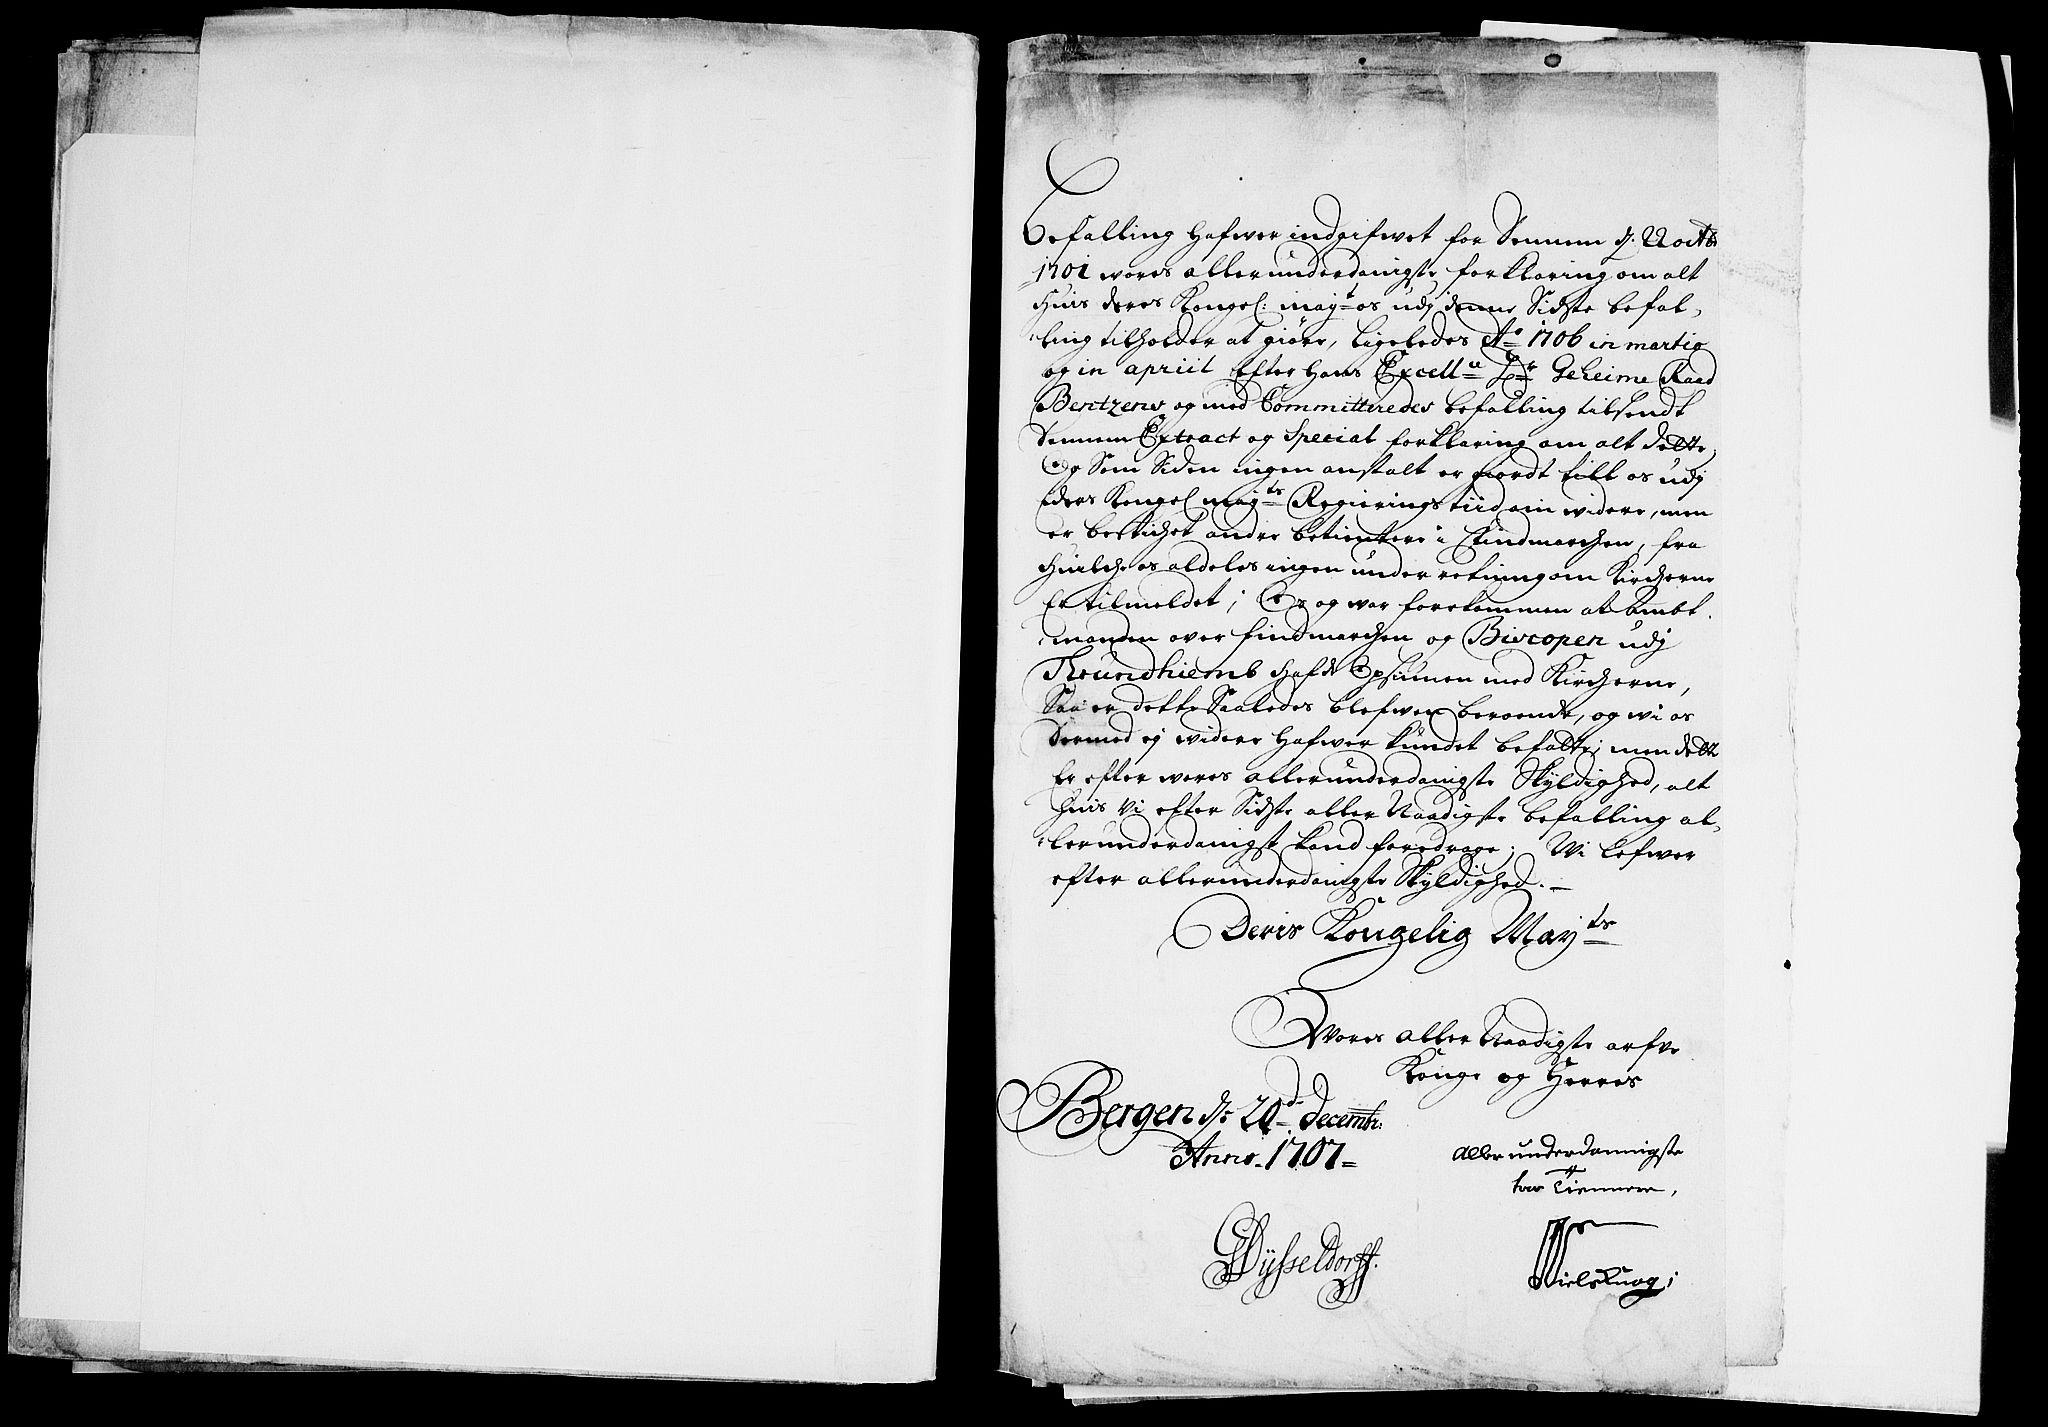 Befalling Hafwer indgifwet for Dennem d. 22 octb:
1701 wores allerunderdanigste forklaring om alt
huis deres Kongel: may:t os udj denne Sidste befal,
ling tilholder at giøre, ligeledes A:o 1706 in martio
og in apriil Efter Hans Excell:n H:r Geheime Raad
Bentzens og med Committeredes befalling tilsendt
dennem Extract og Special forklaring om alt dette,
Og Som Siden ingen anstalt er giordt till os udj
ders Kongel may:ts Regierings tiid om widere, men
er beskichet andre betientere i Findmarchen, fra
huilche os aldeles ingen underretning om Kircherne
Er tilmeldet; Os og war forekommen at Ambt,
manden ower findmarchen og Biscopen udj
Trundhiemb hafde Opsiunen med Kircherne,
Saa er dette Saaledes blefwen beroende, og wi os
dermed ej widere Hafwer kundet befatte; men dette
Er efter wores allerunderdanigste Skyldighed, alt
huis Vi efter Sidste aller Naadigste befalling al,
lerunderdanigst kand foredrage; Wi lefwer
efter allerunderdanigste Skyldighed. –
Deris Kongelig May:ts
Wores aller Naadigste arfve
Konge og Herres
Bergen d: 20:d Decembr:
Anno. 1707 =
Allerunderdannigste
troe Tiennere,
Dÿsseldorff.
Niels Knag;